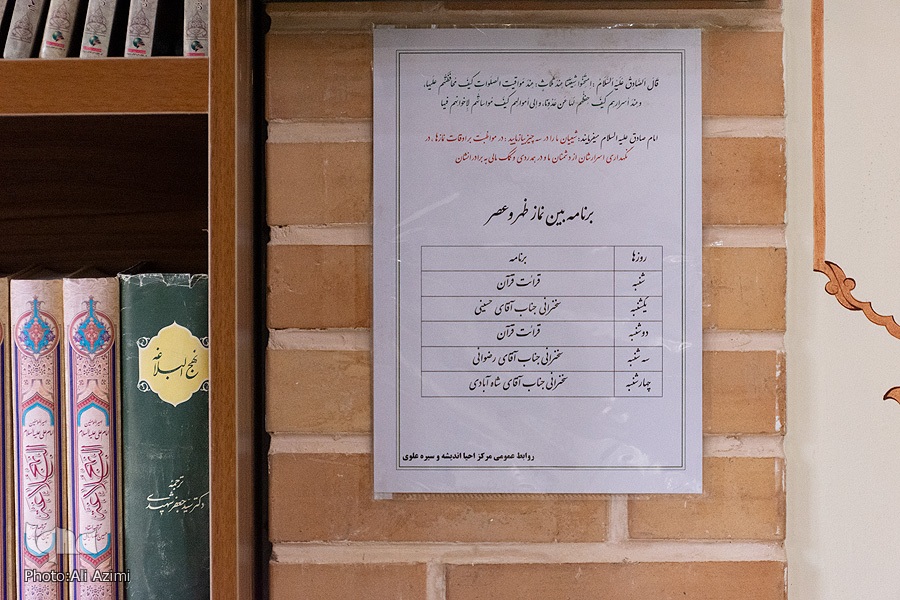 قال الصادق علیه السلام: امتحنوا شیعتنا عند ثلاث: عند مواقیت الصلوات کیف محافظتهم علیها،
و عند اسرارهم کیف حفظهم لها عن عدونا، و الی اموالهم کیف مواساتهم لإخوانهم فیها
امام صادق علیه السلام میفرمایند: شیعیان ما را در سه چیز بیازمایید: در مواظبت بر اوقات نمازها، در
نگهداری اسرارشان از دشمنان ما و در همدردی و کمک مالی به برادرانشان
برنامه بین نماز ظهر و عصر
روزها برنامه
شنبه قرائت قرآن
یکشنبه سخنرانی جناب آقای حسینی
دوشنبه قرائت قرآن
سه شنبه سخنرانی جناب آقای رضوانی
چهارشنبه سخنرانی جناب آقای شاه آبادی
روابط عمومی مرکز احیا اندیشه و سیره علوی
نهج البلاغه
ترجمه
دکتر سید جعفر شهیدی
امیرالمومنین
امام علی علیه السلام
امیرالمومنین
امام علی علیه السلام
Photo:Ali Azimi